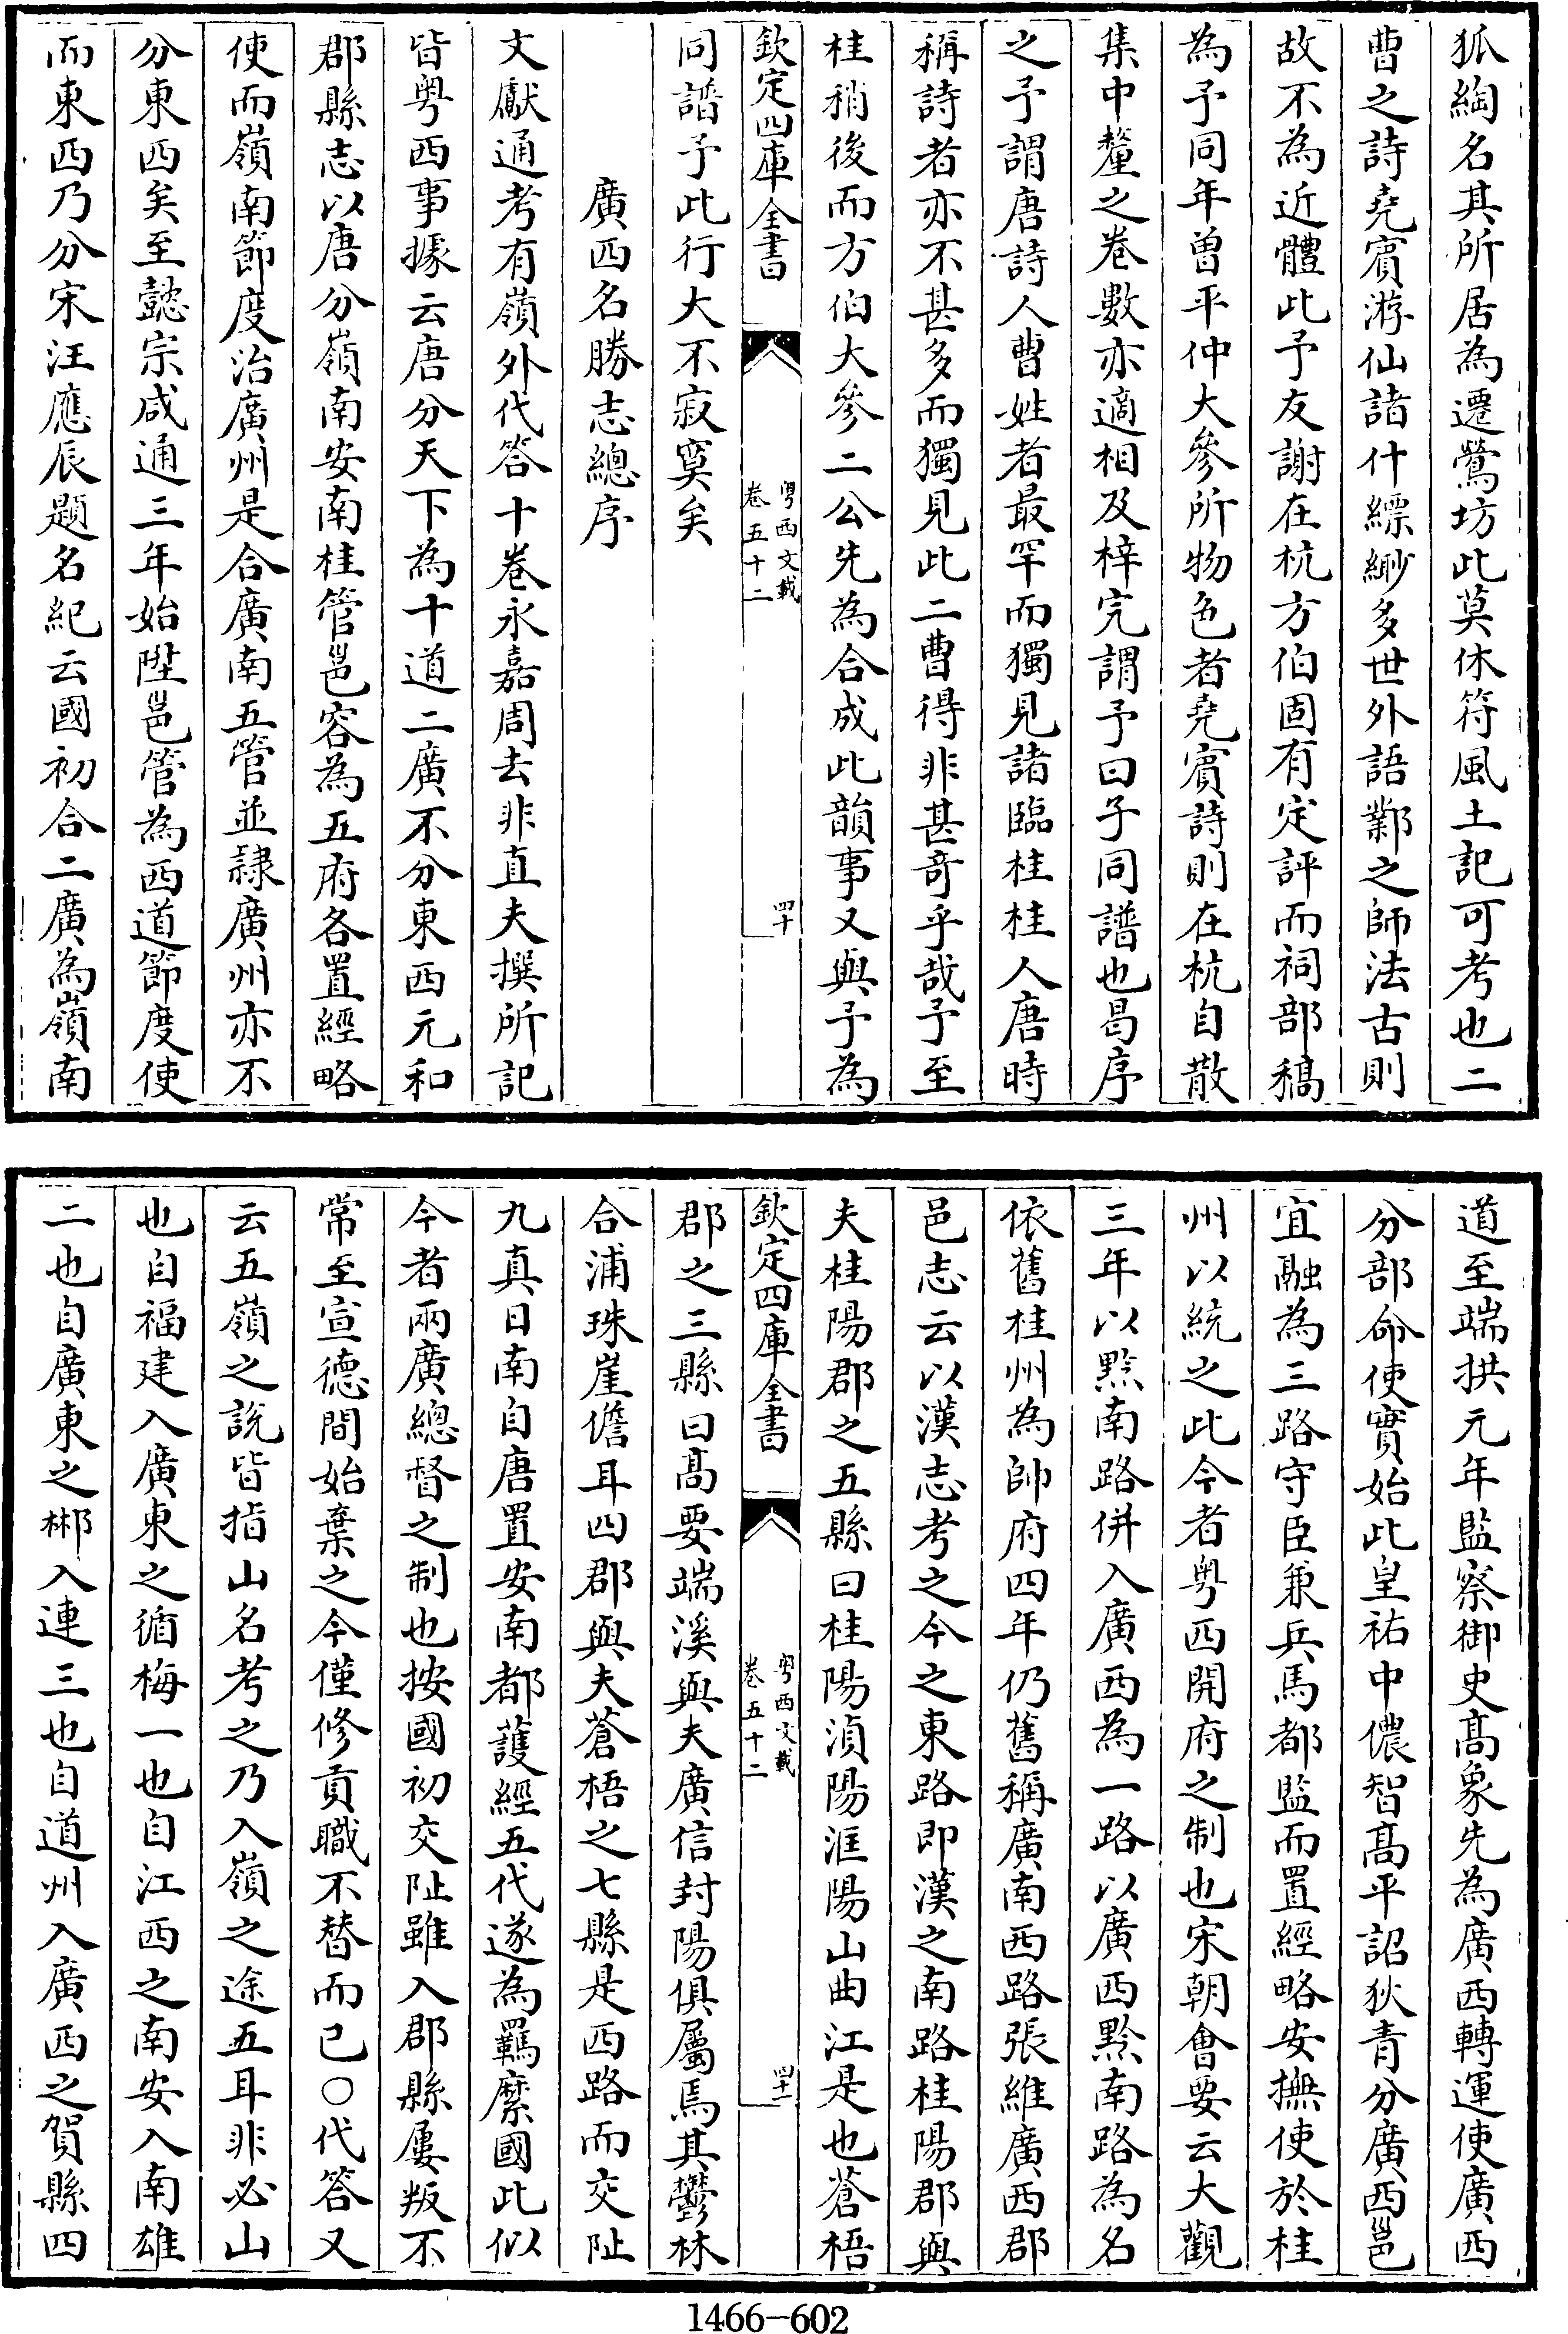 狐綯名其所居為遷鶯坊此莫休符風土記可考也二
曹之詩堯賓游仙諸什縹緲多世外語鄴之師法古則
故不為近體此予友謝在杭方伯固有定評而祠部稿
為予同年曾平仲大參所物色者堯賓詩則在杭自散
集中釐之卷數亦適相及梓完謂予曰子同譜也曷序
之予謂唐詩人曹姓者最罕而獨見諸臨桂桂人唐時
稱詩者亦不甚多而獨見此二曹得非甚奇乎哉予至
桂稍後而方伯大參二公先為合成此韻事又與予為
欽定四庫全書
粵西文載
卷五十二
四十
同譜予此行大不寂寞矣
廣西名勝志總序
文獻通考有嶺外代答十卷永嘉周去非直夫撰所記
皆粵西事據云唐分天下為十道二廣不分東西元和
郡縣志以唐分嶺南安南桂管邕容為五府各置經略
使而嶺南節度治廣州是合廣南五管並隷廣州亦不
分東西矣至懿宗咸通三年始陞邕管為西道節度使
而東西乃分宋汪應辰題名紀云國初合二廣為嶺南
道至端拱元年監察御史髙象先為廣西轉運使廣西
分部命使實始此皇祐中儂智髙平詔狄青分廣西邕
宜融為三路守臣兼兵馬都監而置經略安撫使於桂
州以統之此今者粵西開府之制也宋朝會要云大觀
三年以黔南路併入廣西為一路以廣西黔南路為名
依舊桂州為帥府四年仍舊稱廣南西路張維廣西郡
邑志云以漢志考之今之東路即漢之南路桂陽郡與
夫桂陽郡之五縣曰桂陽湞陽洭陽山曲江是也蒼梧
欽定四庫全書
粵西文載
卷五十二
四十一
郡之三縣曰髙要端溪與夫廣信封陽俱屬焉其鬱林
合浦珠崖儋耳四郡與夫蒼梧之七縣是西路而交阯
九真日南自唐置安南都護經五代遂為羈縻國此似
今者兩廣總督之制也按國初交阯雖入郡縣屢叛不
常至宣德間始棄之今僅修貢職不替而已○代答又
云五嶺之說皆指山名考之乃入嶺之途五耳非必山
也自福建入廣東之循梅一也自江西之南安入南雄
二也自廣東之郴入連三也自道州入廣西之賀縣四
1466-602